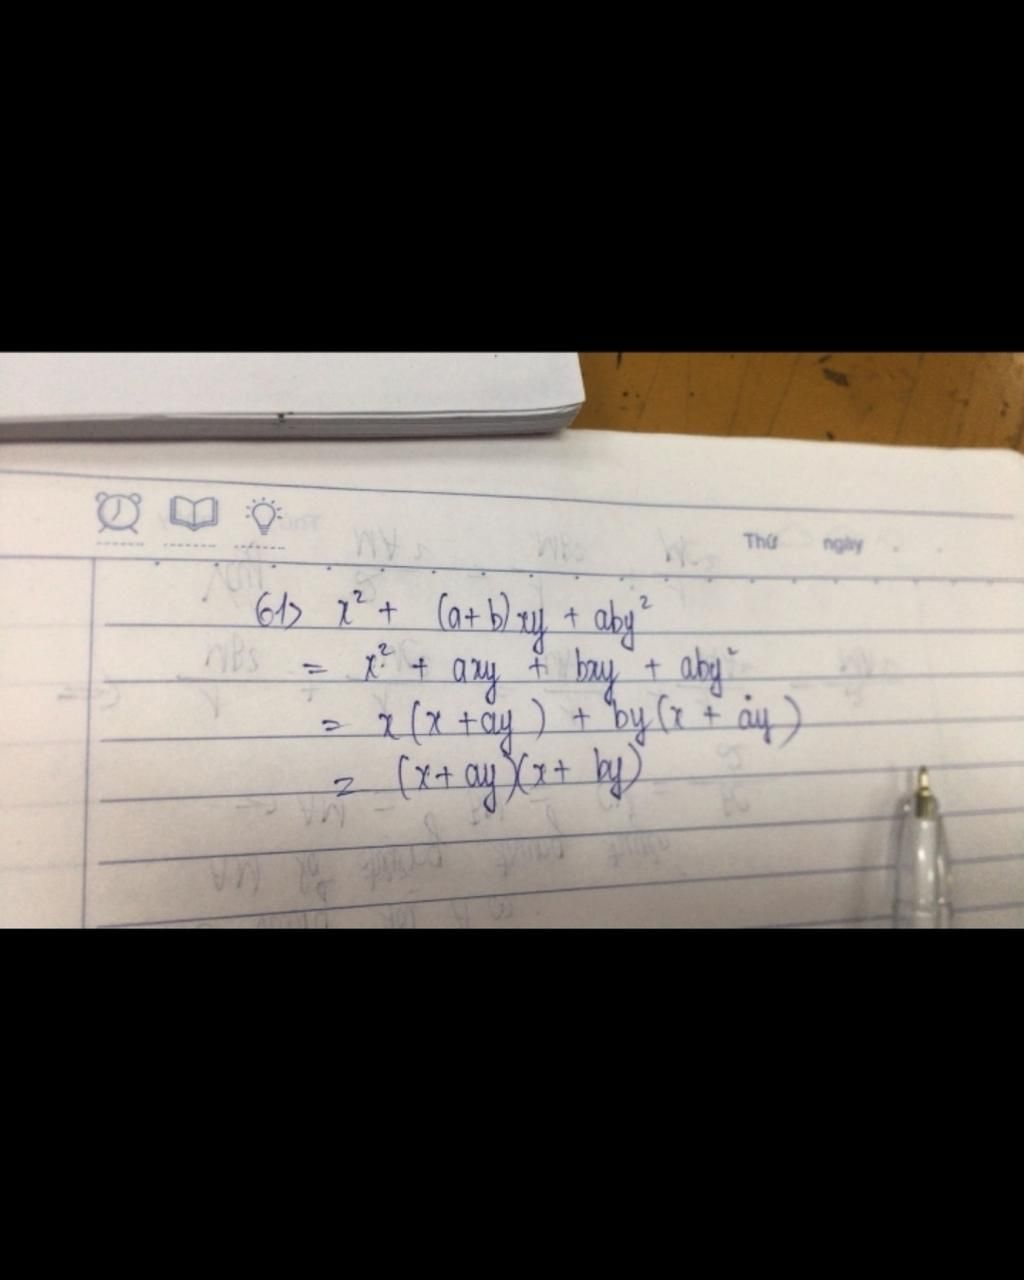 Thứ ngày
61> x² + (a+b)xy + aby²
= x² + axy + bxy + aby²
= x(x+ay) + by(x + ay)
= (x+ay)(x+ by)